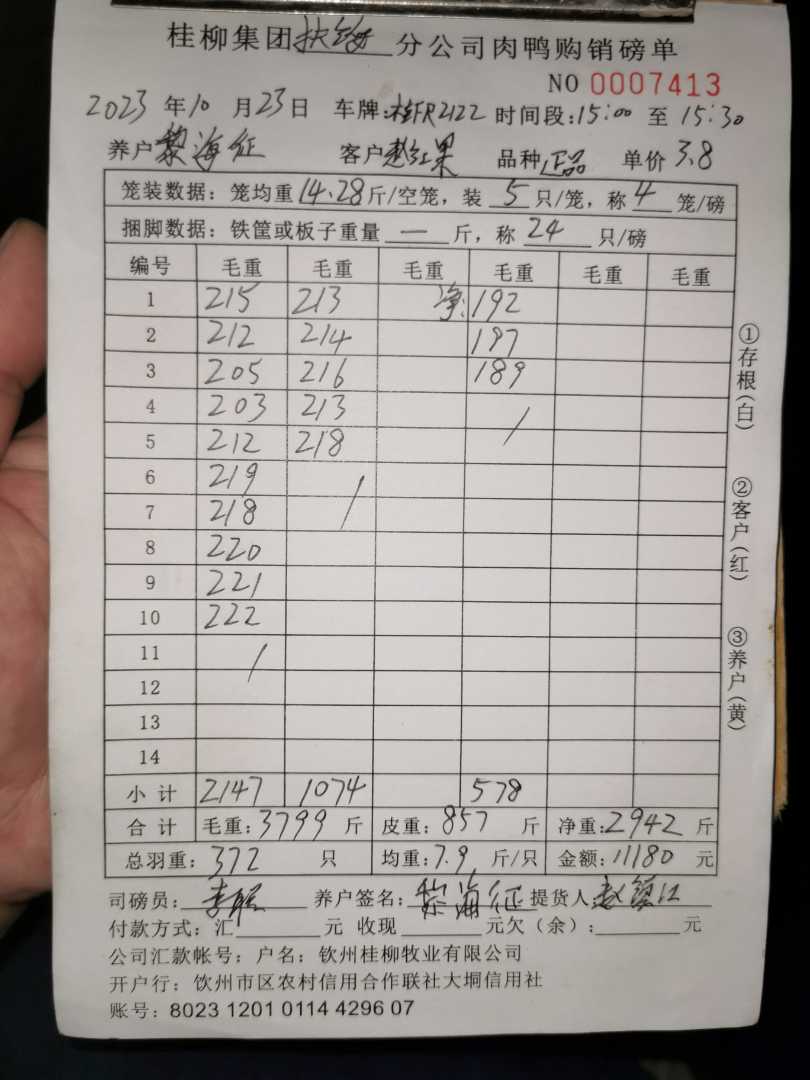 桂柳集团扶绥分公司肉鸭购销磅单
NO 0007413
2023年10月23日 车牌:桂FR2122 时间段:15:00至15:30
养户黎海征 客户赵红果 品种正品 单价3.8
笼装数据:笼均重14.28斤/空笼,装5只/笼,称4笼/磅
捆脚数据:铁筐或板子重量—斤,称24只/磅
编号 毛重 毛重 毛重 毛重 毛重 毛重
1 215 213 净:192
2 212 214 197
3 205 216 189
4 203 213 /
5 212 218
6 219 /
7 218
8 220
9 221
10 222
11 /
12
13
14
小计 2147 1074 578
合计 毛重:3799斤 皮重:857斤 净重:2942斤
总羽重:372只 均重:7.9斤/只 金额:11180元
司磅员: 养户签名:黎海征 提货人:赵镇江
付款方式:汇 元 收现 元欠(余): 元
公司汇款帐号:户名:钦州桂柳牧业有限公司
开户行:钦州市区农村信用合作联社大垌信用社
账号:8023 1201 0114 4296 07
①存根(白)
②客户(红)
③养户(黄)